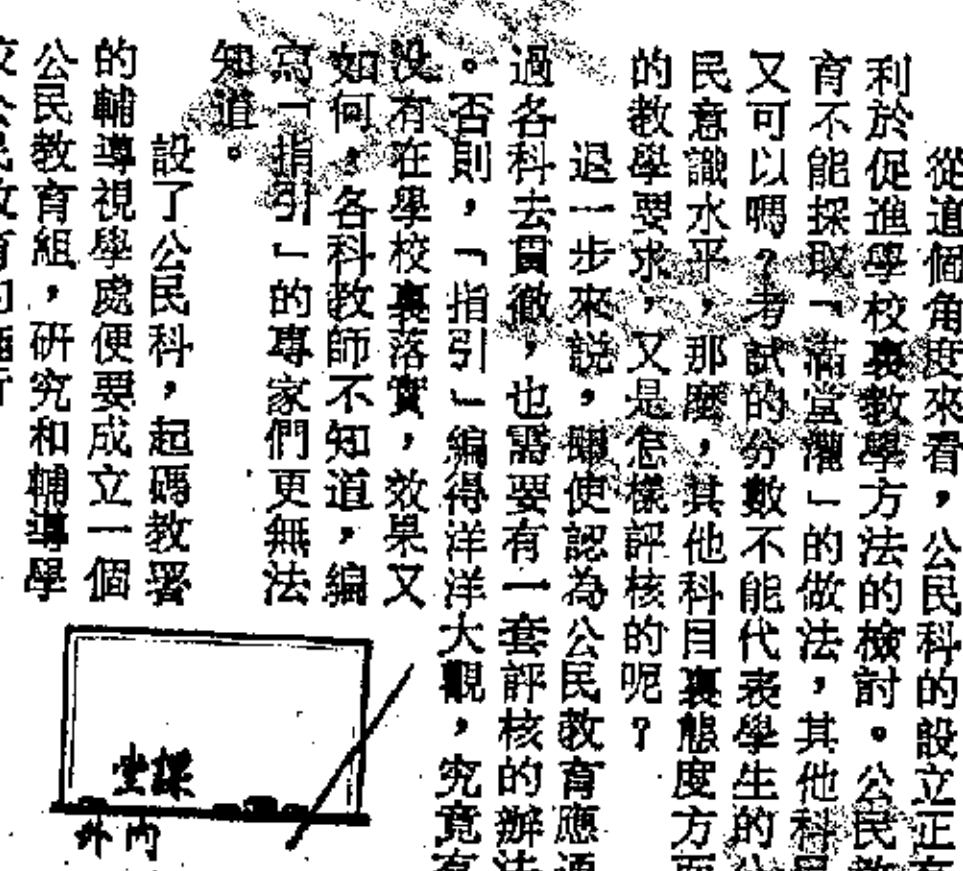 從這個角度來看，公民科的設立正有
利於促進學校裏教學方法的檢討。公民教
育不能採取「滿堂灌」的做法，其他科目
又可以嗎？考試的分數不能代表學生的公
民意識水平，那麼，其他科目裏態度方面
的教學要求，又是怎樣評核的呢？
退一步來説，即使認為公民教育應通
過各科去貫徹，也需要有一套評核的辦法
。否則，「指引」編得洋洋大觀，究竟有
没有在學校裏落實，效果又
如何，各科教師不知道，編
寫「指引」的專家們更無法
知道。
設了公民科，起碼教署
的輔導視學處便要成立一個
公民教育組，研究和輔導學
校公民教育的
課堂
內外